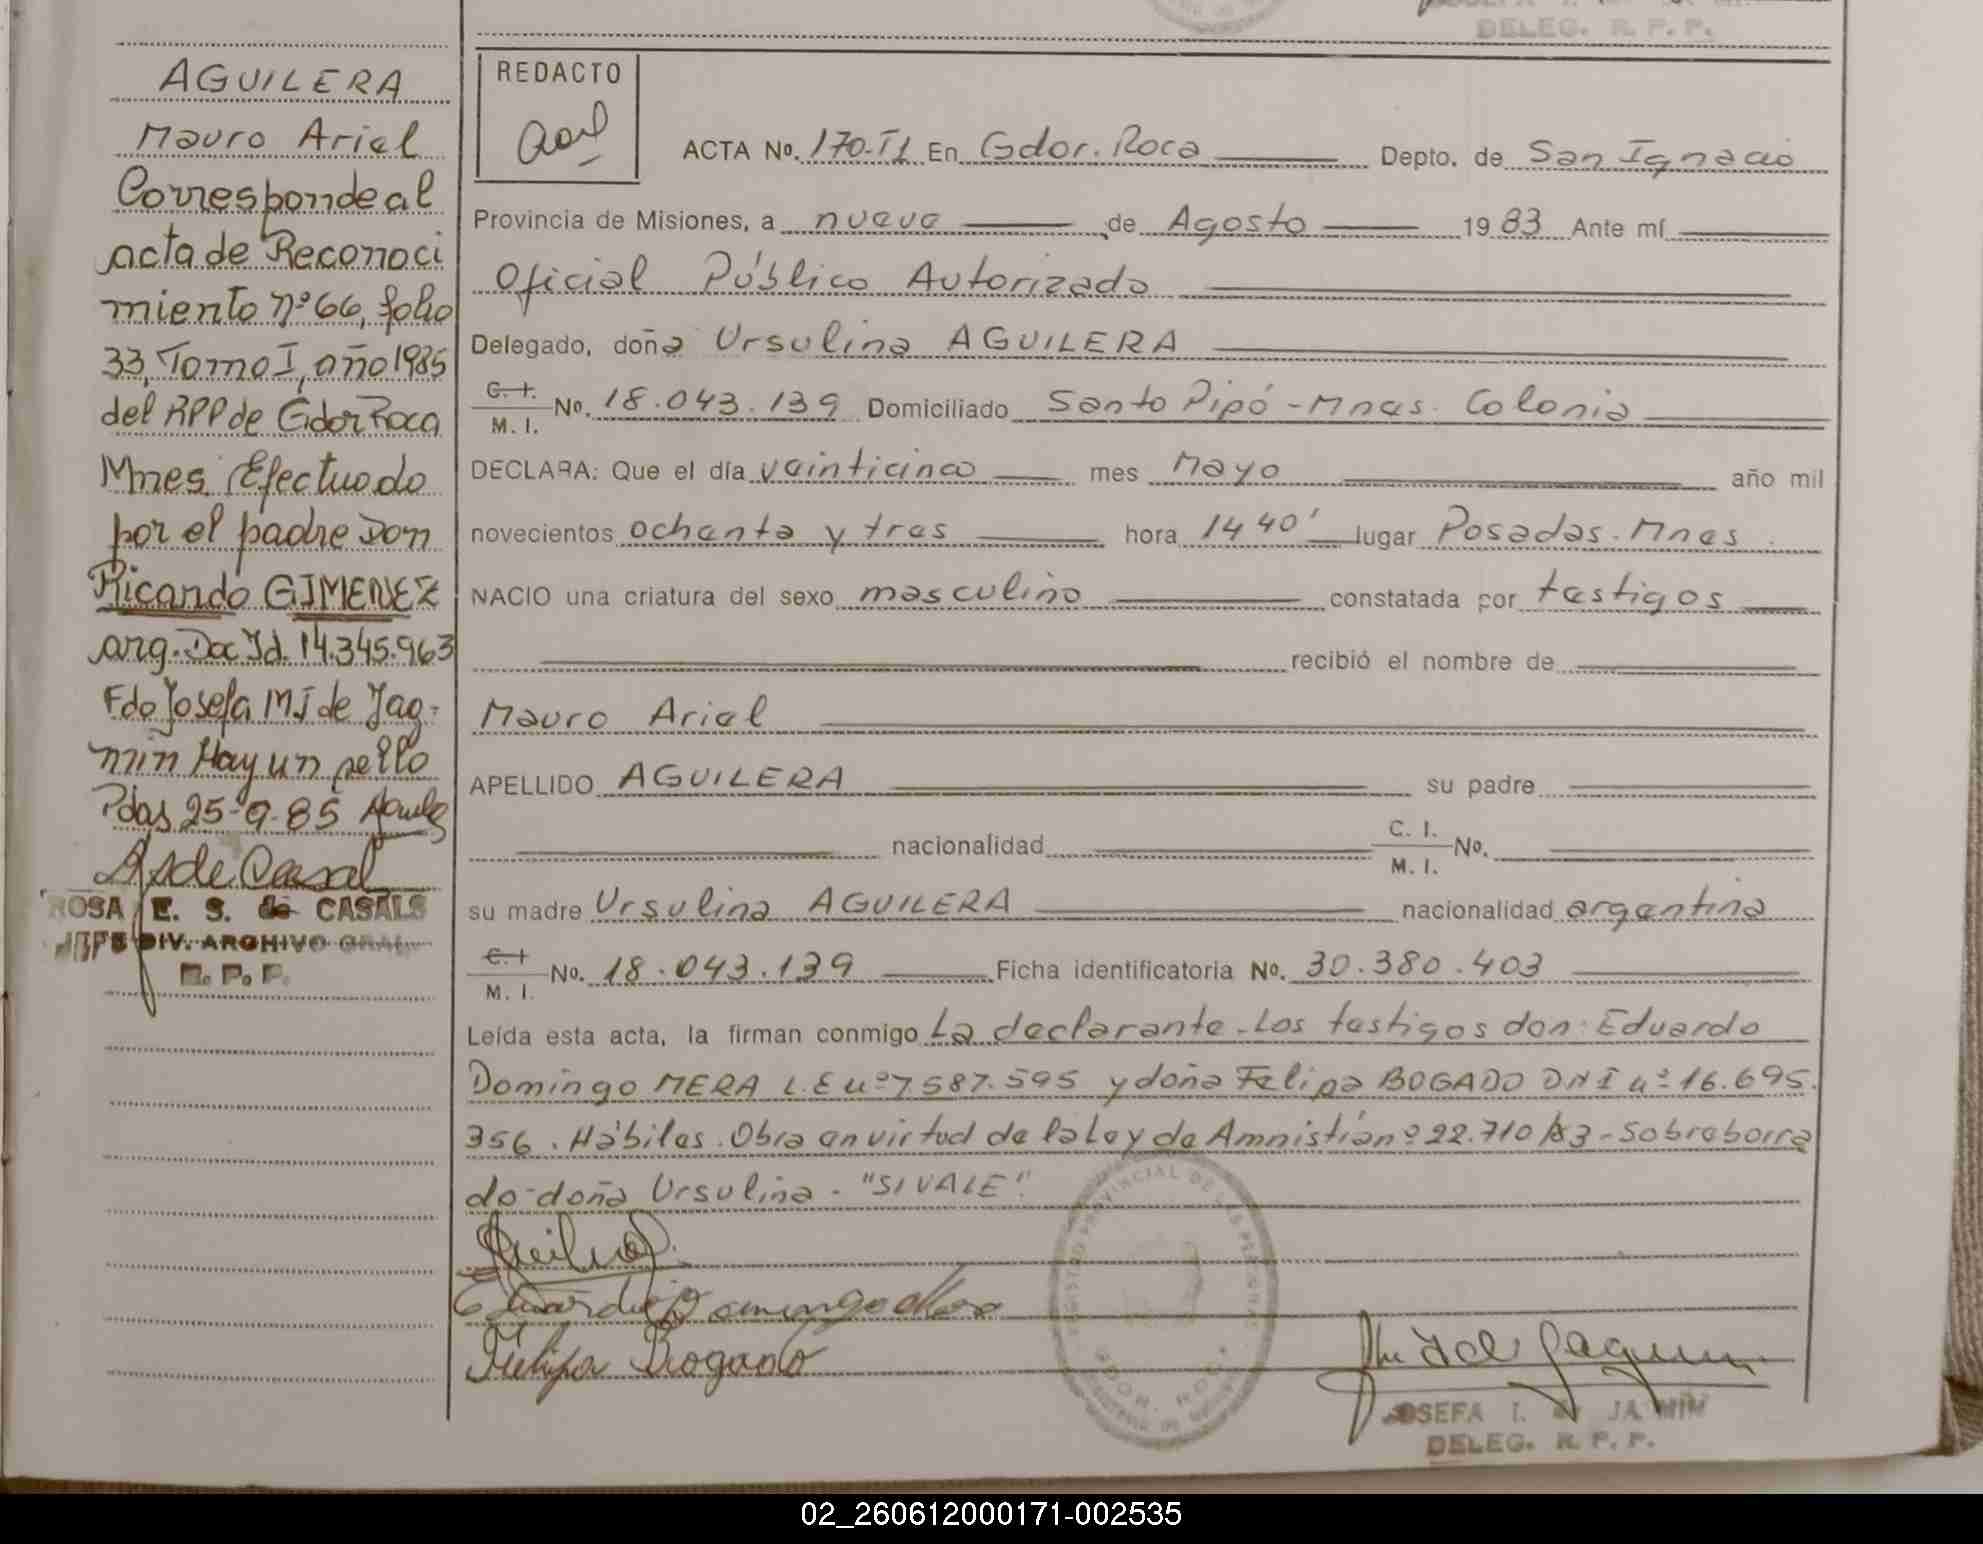 DELEG. R. P. P.
AGUILERA
Mauro Ariel
Corresponde al
acta de Reconoci
miento nº 66, folio
33, Tomo I, año 1985
del RPP de Gdor Roca
Mnes. Efectuado
por el padre Don
Ricardo GIMENEZ
arg. Doc Id. 14.345.963
Fdo Josefa M I de Jag-
min Hay un sello
Pdas 25-9-85
ROSA E. S. de CASALS
JEFE DIV. ARCHIVO GRAL.
R. P. P.
REDACTO
ACTA No. 170-T1 En Gdor. Roca Depto. de San Ignacio
Provincia de Misiones, a nueve de Agosto 1983 Ante mí
Oficial Público Autorizado
Delegado, doña Ursulina AGUILERA
C. I. / M. I. No. 18.043.139 Domiciliado Santo Pipó - Mnes. Colonia
DECLARA: Que el día veinticinco mes Mayo año mil
novecientos ochenta y tres hora 14 40' lugar Posadas. Mnes.
NACIO una criatura del sexo masculino constatada por testigos
recibió el nombre de
Mauro Ariel
APELLIDO AGUILERA su padre
nacionalidad C. I. / M. I. No.
su madre Ursulina AGUILERA nacionalidad argentina
C. I. / M. I. No. 18.043.139 Ficha identificatoria No. 30.380.403
Leída esta acta, la firman conmigo La declarante. Los testigos don: Eduardo
Domingo MERA L.E nº 7.587.595 y doña Felipa BOGADO DNI nº 16.695.
356. Hábiles. Obra en virtud de la Ley de Amnistía nº 22.710/83 - Sobreborra
do - doña Ursulina - "SI VALE".
Eduardo Domingo Mera
Felipa Bogado
GDOR. ROCA
JOSEFA I. de JAGMIN
DELEG. R. P. P.
02_260612000171-002535